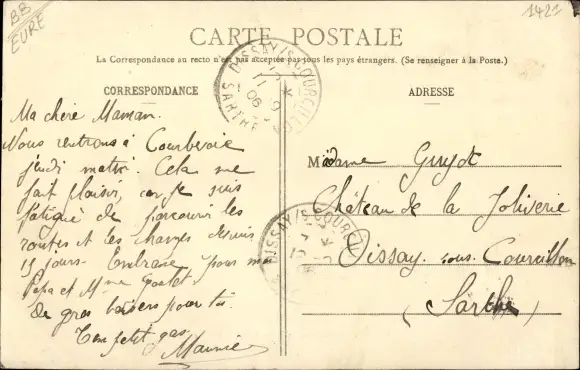 BB
EURE
1421
CARTE POSTALE
La Correspondance au recto n'est pas acceptée par tous les pays étrangers. (Se renseigner à la Poste.)
CORRESPONDANCE
ADRESSE
DISSAY-S-COURCILLON
11
06
SARTHE
Ma chère Maman.
Nous rentrons à Courbevoie
jeudi matin. Cela me
fait plaisir, car je suis
fatigué de parcourir les
routes et les champs depuis
15 jours. Embrasse pour moi
Papa et Mme
De gros baisers pour toi.
Ton petit gas.
Maurice
Madame Guyot
Château de la Joliverie
Dissay-sous-Courcillon
(Sarthe)
DISSAY-S-COURCILLON